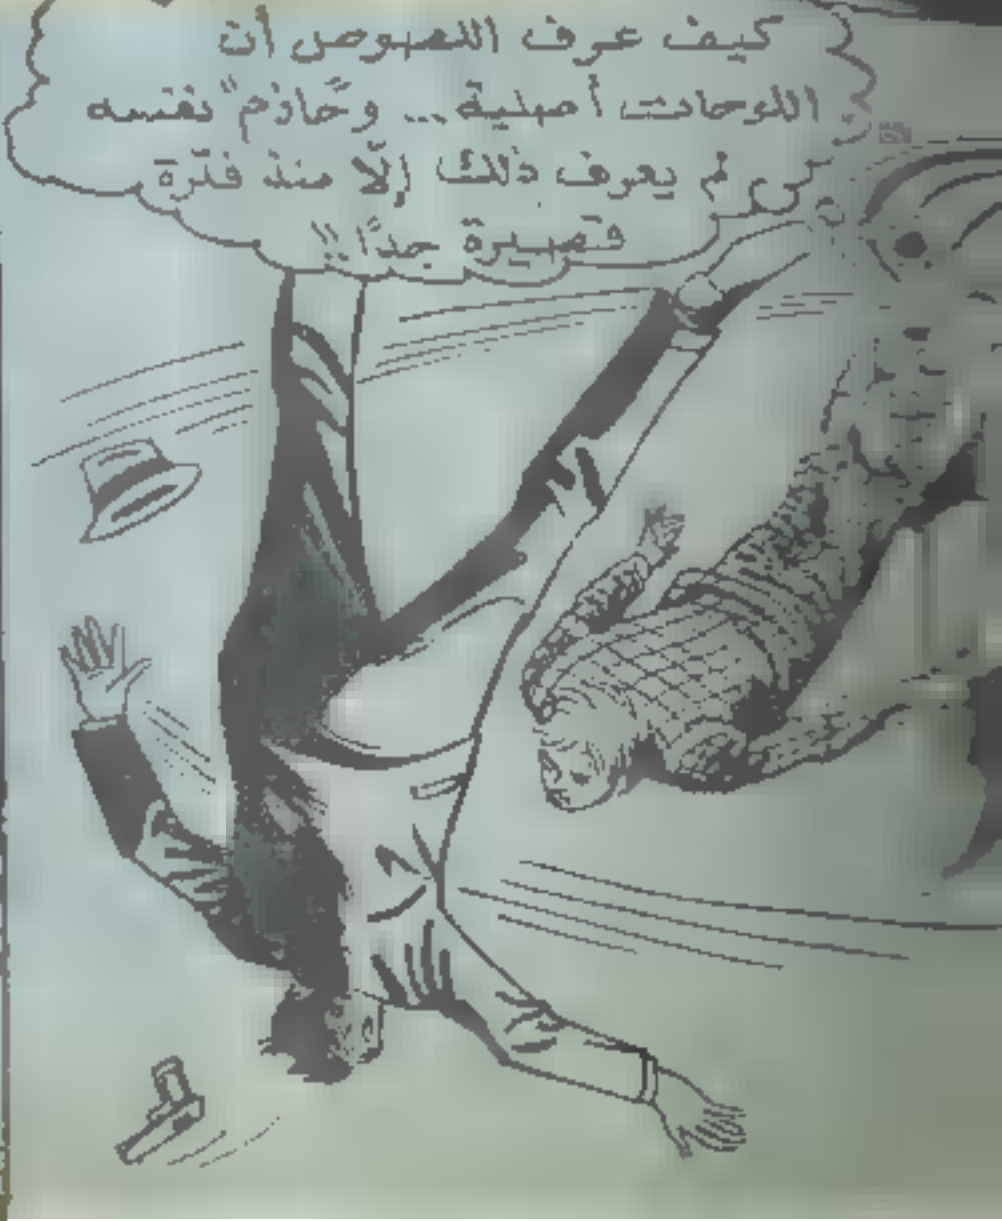 كيف عرف اللصوص أن
اللوحات أصلية... و"حازم" نفسه
لم يعرف ذلك إلّا منذ فترة
قصيرة جدًا!!